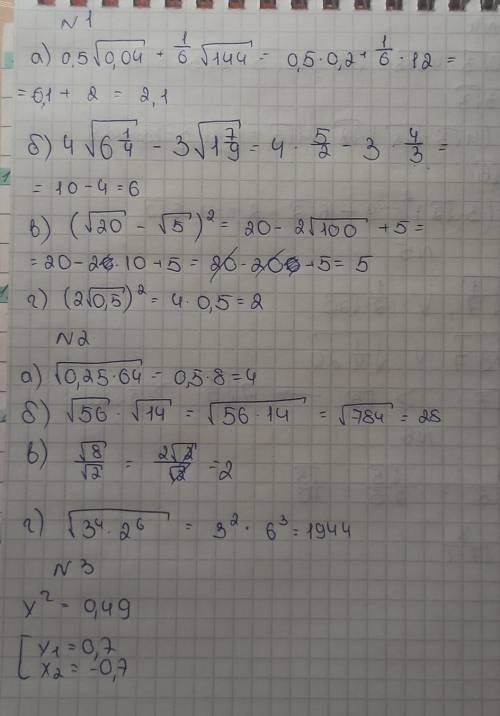 N 1
а) 0,5√0,04 + 1/6 √144 = 0,5·0,2 + 1/6 · 12 =
= 0,1 + 2 = 2,1
б) 4 √6 1/4 - 3√1 7/9 = 4 · 5/2 - 3 · 4/3 =
= 10 - 4 = 6
в) (√20 - √5)² = 20 - 2√100 + 5 =
= 20 - 2·10 + 5 = 20 - 20 + 5 = 5
г) (2√0,5)² = 4 · 0,5 = 2
N 2
а) √0,25·64 = 0,5·8 = 4
б) √56 · √14 = √56·14 = √784 = 28
в) √8/√2 = 2√2/√2 = 2
г) √3⁴·2⁶ = 3² · 6³ = 1944
N 3
x² = 0,49
[ x1 = 0,7
x2 = -0,7